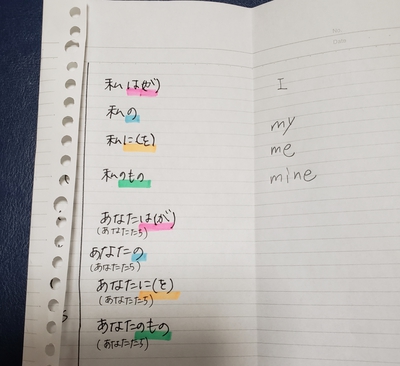 私は(が) I
私の my
私に(を) me
私のもの mine
あなたは(が)
(あなたたち)
あなたの
(あなたたち)
あなたに(を)
(あなたたち)
あなたのもの
(あなたたち)